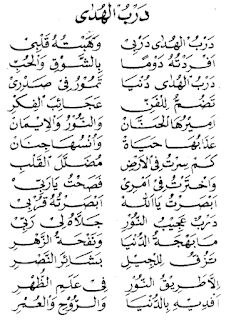 دَرْبُ الْهُدَى
دَرْبُ الْهُدَى دَرْبِي وَهَبْتُهُ قَلْبِي
أَفْرَدْتُهُ دَوْمًا بِالشَّوْقِ وَالْحُبِّ
دَرْبُ الْهُدَى دُنْيَا تَمُورُ فِي صَدْرِي
تَضُمُّ لِلْفَنِّ عَجَائِبَ الْفِكْرِ
أَمِيرُهَا الْحَنَّانْ وَالنُّورُ وَالْإِيمَانْ
عَذَابُهَا حَيَاةْ وَأُنْسُهَا جِنَانْ
كَمْ سِرْتُ فِي الْأَرْضِ مُضَلَّلَ الْقَلْبِ
وَاخْتَرْتُ فِي أَمْرِي فَصِحْتُ يَارَبِّي
وَإِذَا بِالنُّورِ أَبْصَرْتُهُ قُرْبِي
دَرْبٌ عَجِيبُ النُّورْ جَلَاهُ لِي رَبِّي
مَا بَهْجَةُ الدُّنْيَا وَنَفْحَةُ الزَّهْرِ
تُزَفُّ لِلْجِيلِ بَشَائِرُ النَّصْرِ
إِلَّا طَرِيقُ النُّورْ فِي عَالَمِ الطُّهْرِ
أَفْدِيهِ بِالدُّنْيَا وَالرُّوحِ وَالْعُمْرِ